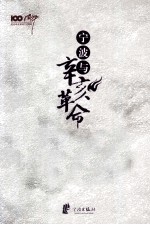 100
宁波与
辛亥革命
宁波出版社